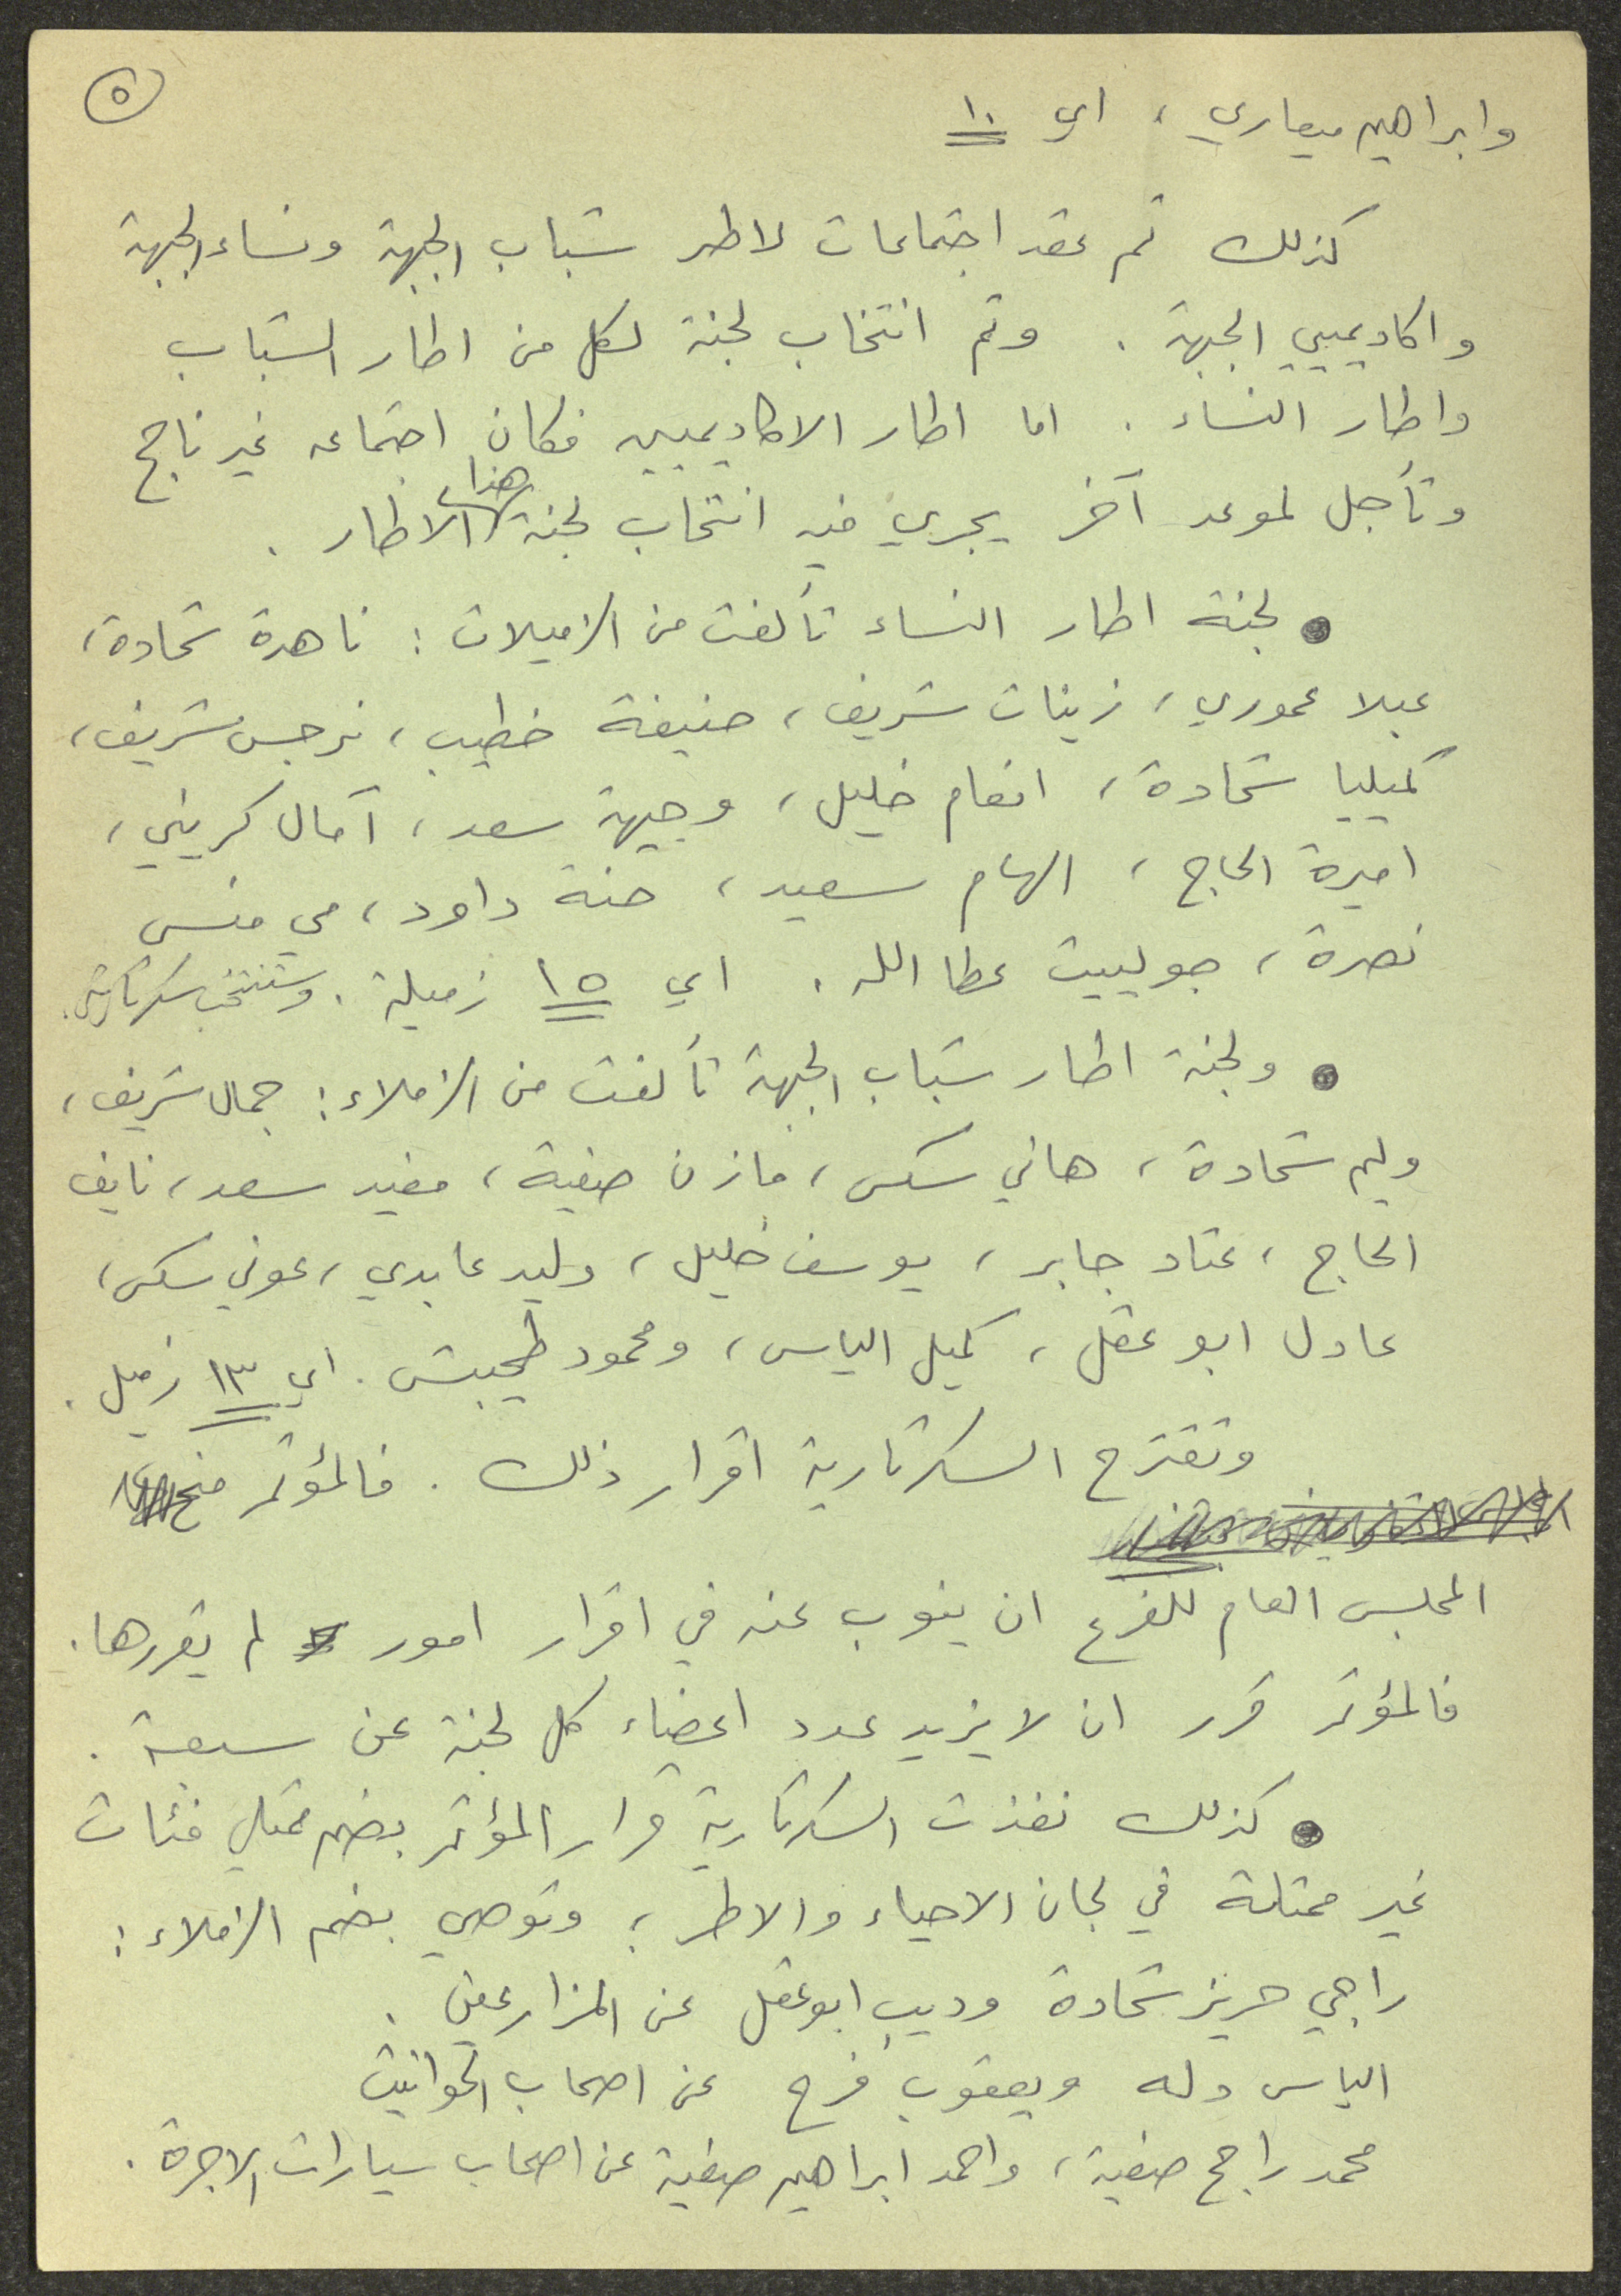 ٥
وابراهيم ميعاري ، اي ١٠
كذلك تم عقد اجتماعات لاطر شباب الجبهة ونساء الجبهة
واكاديميي الجبهة . وتم انتخاب لجنة لكل من اطار الشباب
واطار النساء . اما اطار الاكاديميين فكان اجتماعه غير ناجح
وتأجل لموعد آخر يجري فيه انتخاب لجنة هذا الاطار .
● لجنة اطار النساء تألفت من الزميلات : ناهدة شحادة ،
عبلا عموري ، زينات شريف ، حنيفة خطيب ، نرجس شريف ،
كميليا شحادة ، انعام خليل ، وجيهة سعد ، آمال كريني ،
اميرة الحاج ، الهام سعيد ، حنة داود ، مي منسى
نصرة ، جولييت عطا الله . اي ١٥ زميلة . وستنتخب سكرتارية .
● ولجنة اطار شباب الجبهة تألفت من الزملاء : جمال شريف ،
وليم شحادة ، هاني سكس ، مازن صفية ، مفيد سعد ، نايف
الحاج ، عتاد جابر ، يوسف خليل ، وليد عابدي ، عوني سكس ،
عادل ابو عقل ، كميل الياس ، ومحمود طحيبش . اي ١٣ زميل .
وتقترح السكرتارية اقرار ذلك . فالمؤتمر منح
المجلس العام للفرع ان ينوب عنه في اقرار امور لم يقررها .
فالمؤتمر قرر ان لا يزيد عدد اعضاء كل لجنة عن سبعة .
● كذلك نفذت السكرتارية قرار المؤتمر بضم ممثلي فئات
غير ممثلة في لجان الاحياء والاطر ؛ وتوصي بضم الزملاء :
راجي حريز شحادة وديب ابو عقل عن المزارعين .
الياس دله ويعقوب فرح عن اصحاب الحوانيت
محمد راجح صفية ، واحمد ابراهيم صفية عن اصحاب سيارات الاجرة .